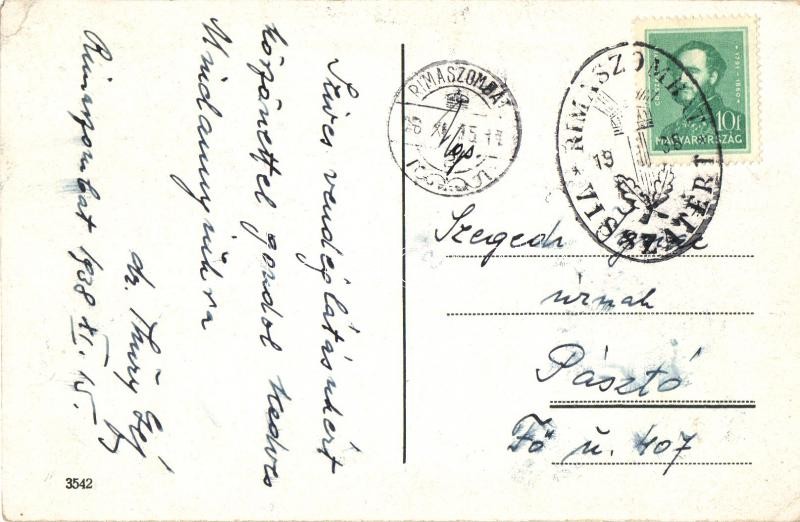 Szives vendéglátásukért
köszönettel gondol kedves
Mindannyiukra
dr. Thury
Rimaszombat 1938 XI. 15.
3542
RIMASZOMBAT
RIMASZOMBAT
VISSZATÉRT
19 38
1791-1860
10f
MAGYARORSZÁG
Szegedi
úrnak
Pásztó
Fő u. 407